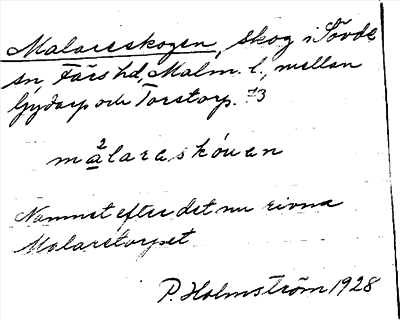 Malareskogen, skog i Sövde
sn, Färs hd, Malm. l., mellan
och Torstorp. 73
2
målaraskóuan
Namnet efter det nu rivna
Malaretorpet
P. Holmström 1928